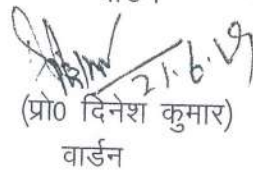 21.6.19
(प्रो0 दिनेश कुमार)
वार्डन